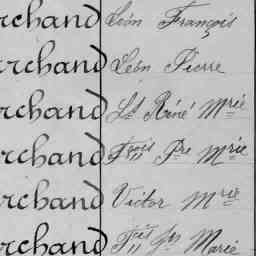 rchand Léon François
rchand Léon Pierre
rchand Ls Réné Mrie
rchand Frçois Pre Mrie
rchand Victor Mrie
rchand Marie